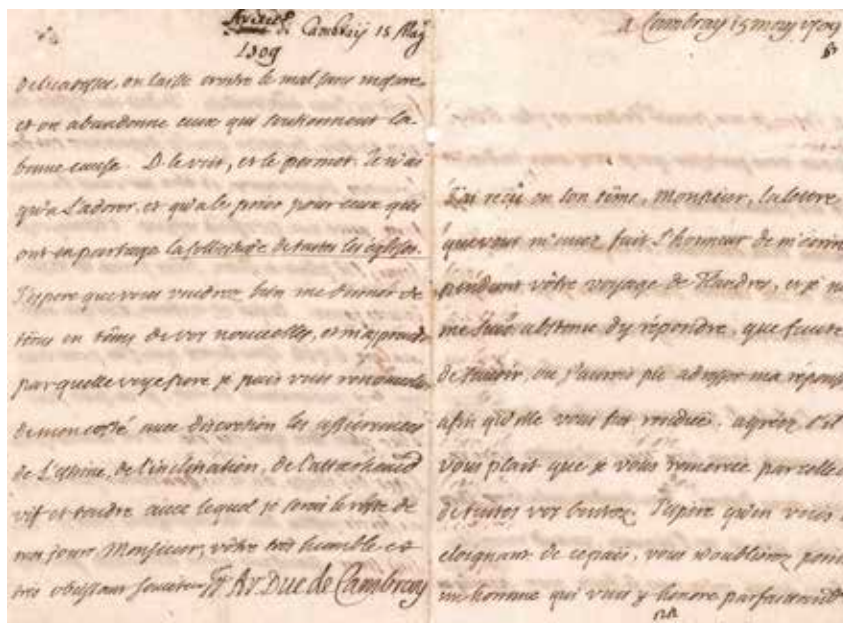 Cambray 15 May
1709
delicatesse, on laisse croitre le mal sans mesure,
et on abandonne ceux qui soutiennent la
bonne cause. D. le voit, et le permet. Je n'ai
qu'a L'adorer, et qu'a le prier pour ceux qui
ont en partage la sollicitude de toutes les églises.
J'espere que vous voudrez bien me donner de
tems en têms de vos nouvelles, et m'aprendre
par quelle voye seure je puis vous renouveller
de mon costé avec discretion les asseurances
de L'estime, de l'inclination, de l'attachement
vif et tendre avec lequel je serai le reste de
mes jours Monsieur, vôtre tres humble et
tres obeissant serviteur Fr. Ar. Duc de Cambray
A Cambray 15 may 1709
J'ai reçû en son têms, Monsieur, la lettre,
que vous m'avez fait l'honneur de m'écrire
pendant vôtre voyage de Flandres, et je ne
me suis abstenu d'y répondre, que faute
de sçavoir, ou j'aurois pû adresser ma réponse
afin qu'elle vous fut rendue. agréez s'il
vous plait que je vous remercie par celle
de toutes vos bontez. J'espere qu'en vous
eloignant de ce païs, vous n'oublierez point
un homme qui vous y honore parfaitement